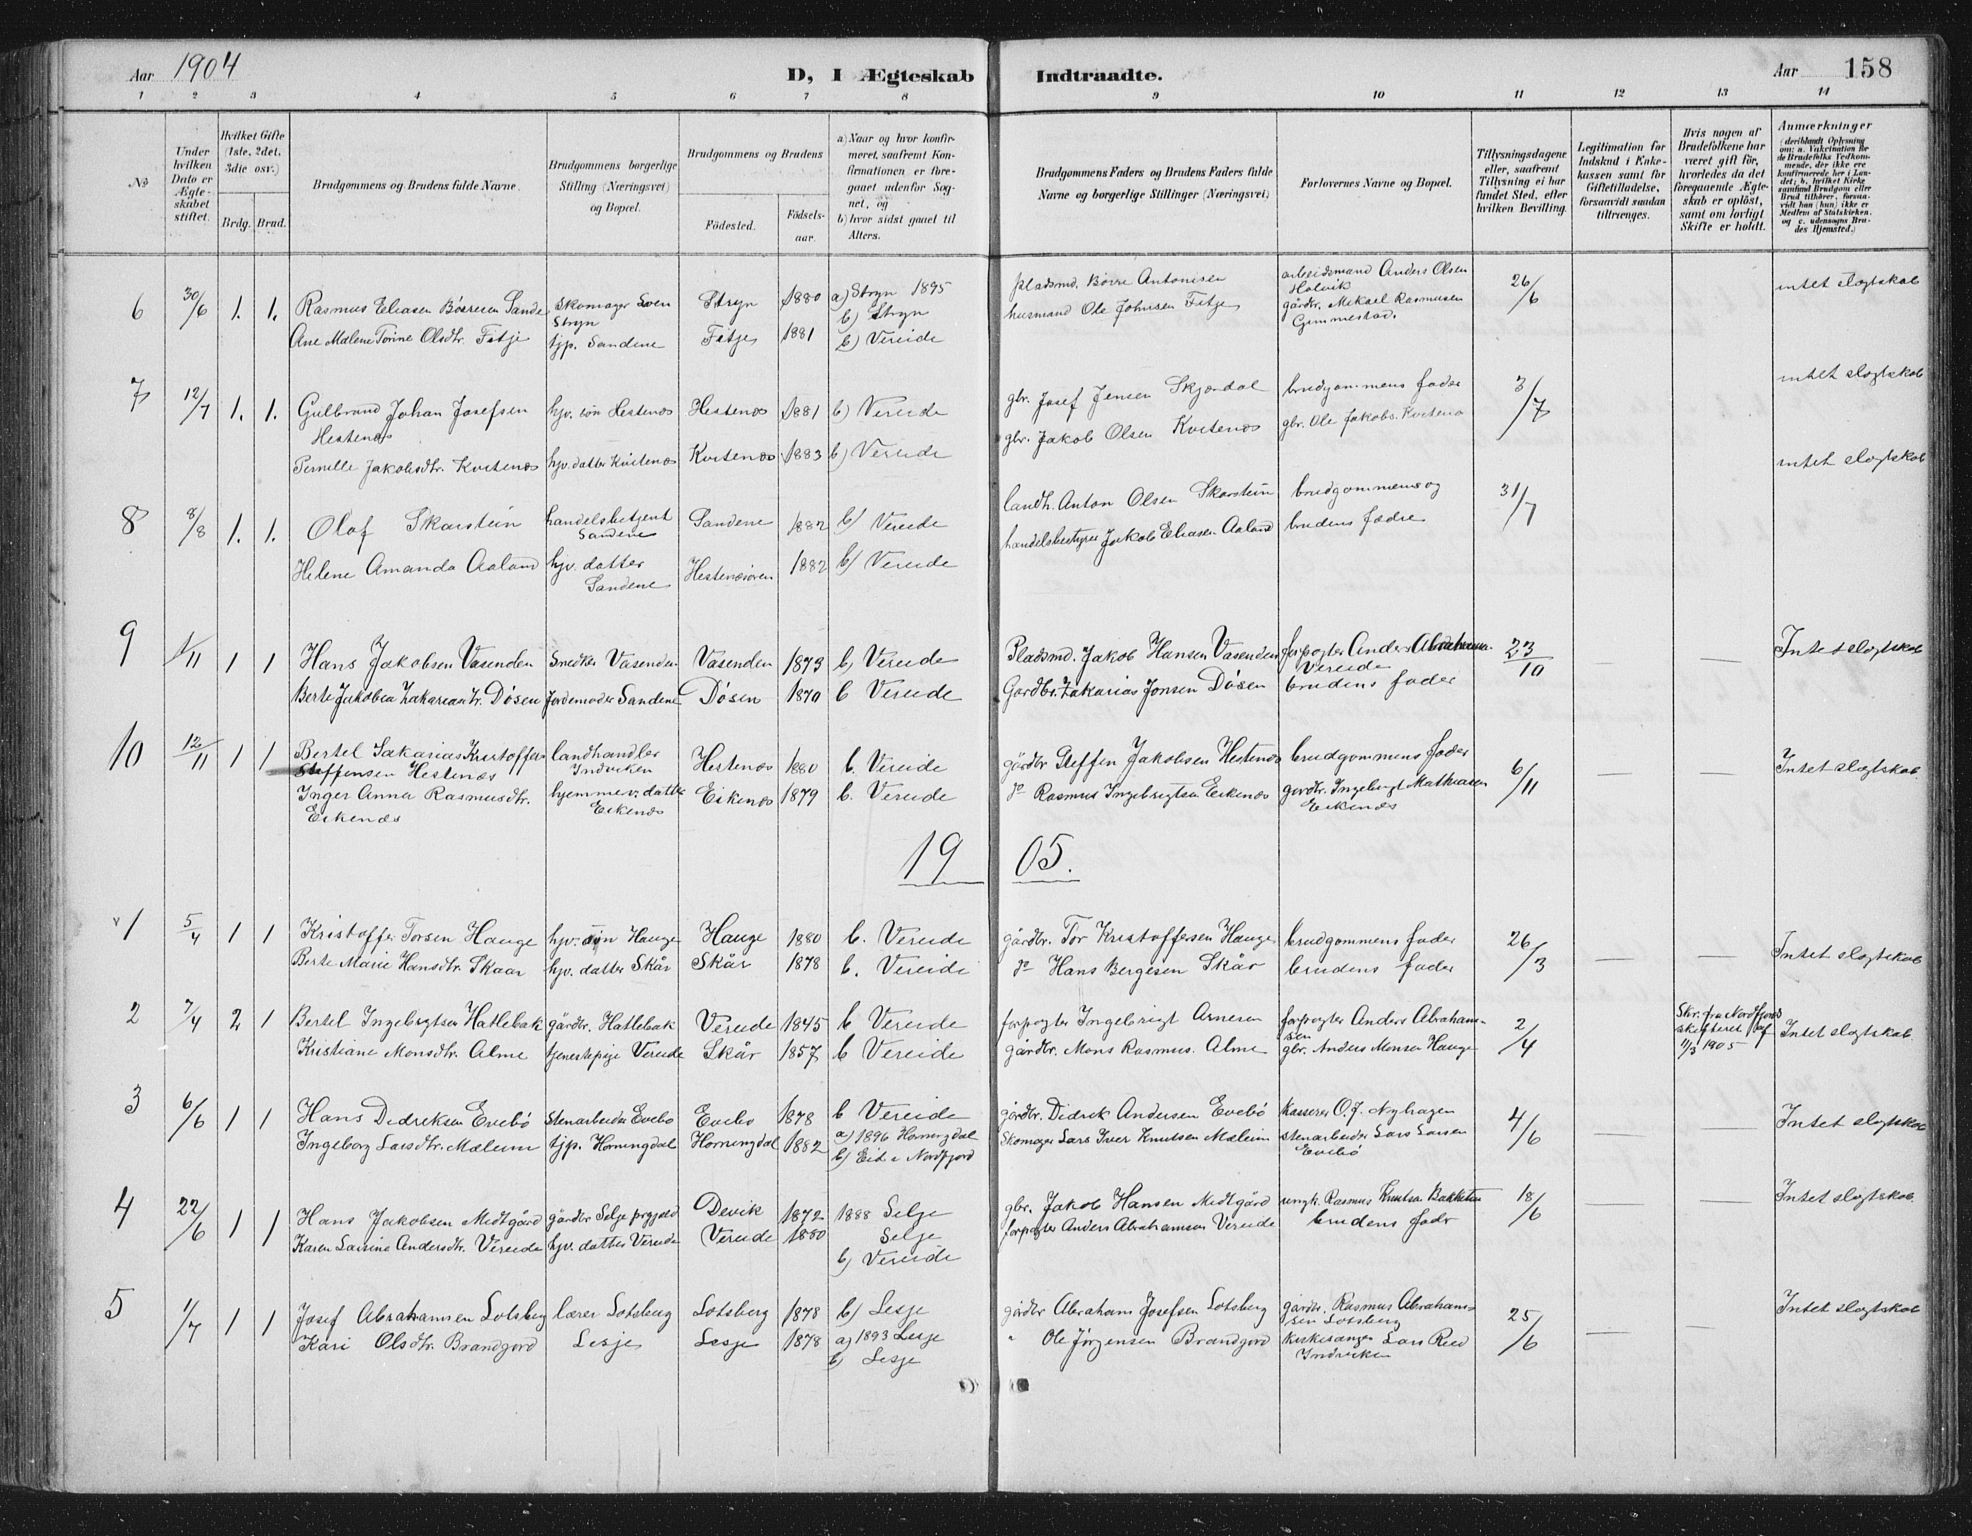 Aar 1904
D, I Ægteskab Indtraadte.
Aar 158
1 2 3 4 5 6 7 8 9 10 11 12 13 14
No
Under hvilken Dato er Ægteskabet stiftet.
Hvilket Gifte (1ste, 2det, 3die osv.)
Brdg. Brud.
Brudgommens og Brudens fulde Navne.
Brudgommens borgerlige Stilling (Næringsvei) og Bopæl.
Brudgommens og Brudens
Födested.
Födselsaar.
a) Naar og hvor konfirmeret, saafremt Konfirmationen er foregaaet udenfor Sognet, og
b) hvor sidst gaael til Alters.
Brudgommens Faders og Brudens Faders fulde Navne og borgerlige Stillinger (Næringsvei)
Forlovernes Navne og Bopæl.
Tillysningsdagene eller, saafremt Tillysning ei har fundet Sted, efter hvilken Bevilling.
Legitimation for Indskud i Enkekassen samt for Giftetilladelse, forsaavidt saadan tiltrænges.
Hvis nogen af Brudefolkene har været gift för, hvorledes da det foregaaende Ægteskab er oplöst, samt om lovligt Skifte er holdt.
Anmærkninger
6 30/6 1. 1. Rasmus Eliasen Sande Skomager Stryn 1880 a) Stryn 1895 pladsmd. Börre Antonisen arbeidsmand Anders Olsen 26/6 intet slegtskab
Stryn b) Stryn husmand Ole Johnsen Fitje gårdr. Mikael Rasmusen
Ane Malene Olsdtr. Fitje tjp. Sandene Fitje 1881 b) Vereide Gimmestad.
7 12/7 1. 1. Gulbrand Johan Josefsen hjv. sön Hestenæs Hestenæs 1881 b) Vereide gbr. Josef Jensen Skjerdal brudgommens fader 3/7 intet slegtskab
Hestenæs gbr. Jakob Olsen Kvitenæs gbr. Ole Jakobs. Kvitenæs
Pernille Jakobsdtr. Kvitenæs hjv. datter Kvitenæs Kvitenæs 1883 b) Vereide intet slegtskab
8 8/8 1. 1. Olaf Skarstein handelsbetjent Sandene 1882 b) Vereide landh. Anton Olsen Skarstein brudgommens og 31/7
Sandene handelsbestyrer Jakob Eliasen Aaland brudens fædre
Helene Amanda Aaland hjv. datter Hestenesören 1882 b) Vereide
Sandene
9 1/11 1 1 Hans Jakobsen Vasenden Snedker Vasenden Vasenden 1873 b) Vereide Pladsmd. Jakob Hansen Vasenden forpagter Anders Abrahamsen 23/10 — Intet slegtskab
Vereide
Berte Jakobea Zakariasdtr. Døsen Jordemoder Sandene Døsen 1870 b Vereide Gardbr. Zakarias Jonsen Døsen brudens fader
10 12/11 1 1 Bertel Sakarias Kristoffer landhandler Hestenæs 1880 b. Vereide gårdbr Steffen Jakobsen Hestenæs brudgommens fader 6/11 — — Intet slegtskab.
Steffensen Hestenæs Indviken
Inger Anna Rasmusdtr. hjemmev. datter Eikenæs 1879 b. Vereide do Rasmus Ingebrigtsen Eikenæs gardbr. Ingebrigt Mathiasen
Eikenæs Eikenæs Eikenæs
1905.
1 5/4 1 1 Kristoffer Torsen Hauge hjv. sön Hauge Hauge 1880 b. Vereide gårdbr. Tor Kristoffersen Hauge brudgommens fader 26/3 — — Intet slegtskab
Berte Marie Hansdtr. Skaar hjv. datter Skår Skår 1878 b. Vereide do Hans Bergesen Skår brudens fader
2 7/4 2 1 Bertel Ingebrigtsen Hatlebak gårdbr. Hatlebak Vereide 1845 b Vereide forpagter Ingebrigt Arnesen forpagter Anders Abrahamsen 2/4 Skr. fra Nordfjord skifteret af 11/3 1905 Intet slegtskab.
Kristiane Monsdtr. Alme tjenestepige Vereide Skår 1857 b Vereide gårdbr. Mons Rasmus. Alme gbr. Anders Monsen Hauge
3 6/6 1 1 Hans Didriksen Evebö Stenarbeider Evebö Evebö 1878 b Vereide gårdbr. Didrik Andersen Evebö Kasserer O.J. Nyhagen 4/6 — — Intet slegtskab
Ingeborg Larsdtr. Mæleim tjp. Horningdal Horningdal 1882 a) 1896 Horningdal Skomager Lars Iver Knutsen Mæleim stenarbeider Lars Larsen
b) Eid i Nordfjord Evebö
4 22/6 1 1 Hans Jakobsen Midtgård gårdbr Selje prgjeld Devik 1872 1888 Selje gbr. Jakob Hansen Midtgård ungk. Rasmus Knutsen 18/6 — — Intet slegtskab.
Selje
Karen Andersdtr. Vereide hjv. datter Vereide Vereide 1880 b) Vereide forpagter Anders Abrahamsen Vereide brudens fadr
5 1/7 1 1 Josef Abrahamsen Lotsberg lærer Lotsberg Lotsberg 1878 b) Lesje gårdbr Abraham Josefsen Lotsberg gårdbr. Rasmus Abrahamsen Lotsberg 25/6 — — Intet slegtskab
Kari Olsdtr. Brandgord Lesje Lesje 1878 a) 1893 Lesje " Ole Jørgensen Brandgord kirkesanger Lars Reed
b) Lesje Indviken